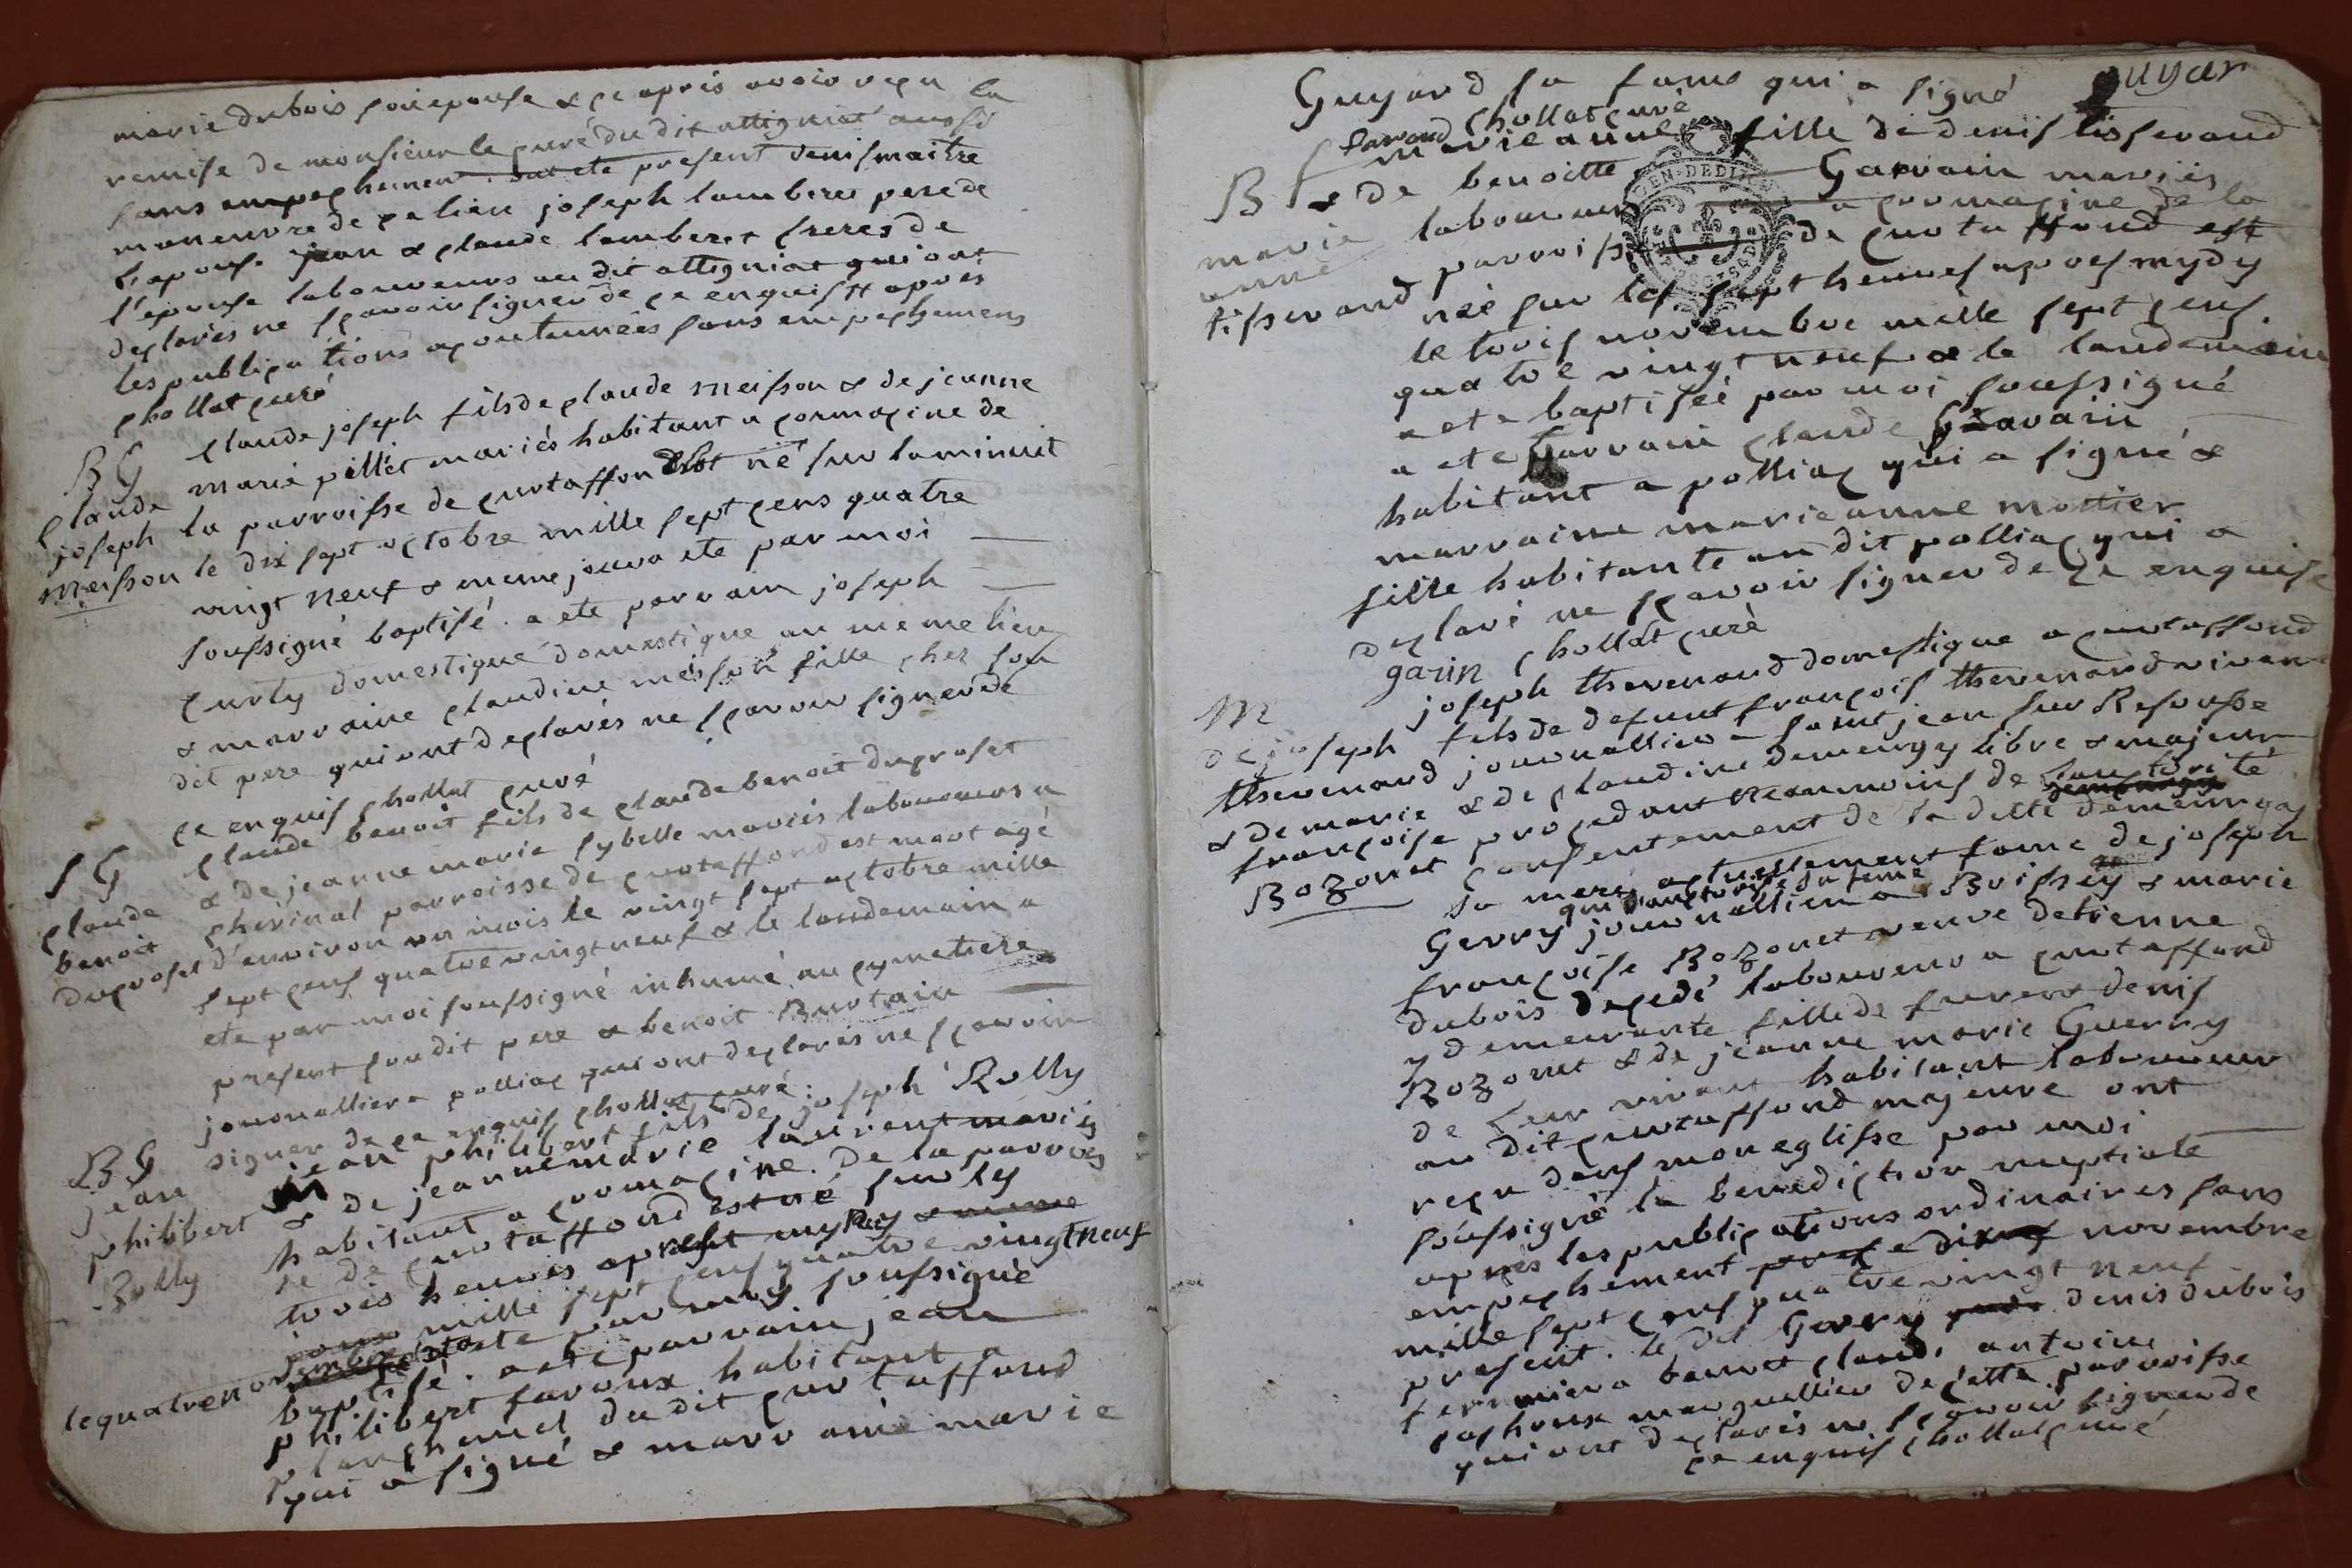 marie dubois son epouse & ce apris avoir reçu la
remise de monsieur le curé du dit attigniat aussi
sans empechement. ont ete present denis maitre
maneuvre de ce lieu joseph lamberet pere de
l'epouse jean & claude lamberet freres de
l'epouse laboureurs au dit attigniat qui ont
declarés ne sçavoir signer de ce enquis & apres
les publications acoutumées sans empechemens
chollat curé
B G claude joseph fils de claude meisson & de jeanne
claude marie pillet mariés habitant a cormacine de
joseph la parroisse de curtaffond est né sur la minuit
meisson le dix sept octobre mille sept cens quatre
vingt neuf & meme jour a ete par moi
soussigné baptisé. a ete parrain joseph
curty domestique domestique au meme lieu
& marraine claudine meisson fille chez son
dit pere qui ont declarés ne sçavoir signer de
ce enquis chollat curé
S G claude benoit fils de claude benoit duprost
claude & de jeanne marie sybelle mariés laboureurs a
benoit cherinal parroisse de curtaffond est mort agé
duprost d'environ un mois le vingt sept octobre mille
sept cens quatre vingt neuf & le landemain a
ete par moi soussigné inhumé au cymetiere
present son dit pere & benoit Burtain
journallier a polliac qui ont declarés ne sçavoir
signer de ce enquis chollat curé
B G jean philibert fils de joseph Rolly
jean & de jeanne marie laurent mariés
philibert habitant a cormacine. De la parrois
Rolly se de curtaffond est né sur les
trois heures apres mydy & meme
jour mille sept cens quatre vingt neuf
le quatre novembre & a ete par moy soussigné
baptisé. a ete parrain jean
philibert faroux habitant a
planchemel du dit curtaffond
qui a signé & marraine marie
Guyard sa fame qui a signé guyar
faroud chollat curé
B marie anne fille de denis tisserand
& de benoitte Garvain mariés
marie laboureurs a cormacine de la
anne parroisse de curtaffond est
tisserand née sur les sept heures apres mydy
le trois novembre mille sept cens
quatre vingt neuf & le landemain
a ete baptisée par moi soussigné
a ete parrain claude Garvain
habitant a polliac qui a signé &
marraine marie anne mottier
fille habitante au dit polliac qui a
declaré ne sçavoir signer de ce enquise
garin chollat curé
M joseph thevenard domestique a curtaffond
de joseph fils de defunt françois thevenard vivan
thevenard journallier a saint jean sur Resousse
& de marie & de claudine demeurgy libre & majeur
françoise procedant neanmoins de l'autorité
Bozonet consentement de la ditte demeurgy
sa mere, actuellement fame de joseph
qui l'autorise sa feme
Gerry journallier a Boissey & marie
françoise Bozonet veuve detienne
dubois decedé laboureur a curtaffond
y demeurante fille de furent denis
Bozonet & de jeanne marie Guerry
de leur vivant habitant laboureur
au dit curtaffond majeure ont
reçu dans mon eglisse par moi
soussigné la benediction nuptiale
apres les publications ordinaires sans
empechement novembre
mille sept cens quatre vingt neuf
present. le dit Gerry denis dubois
fermier a claude antoine
marguellier de cette parroisse
qui ont declarés ne sçavoir signer de
ce enquis chollat curé